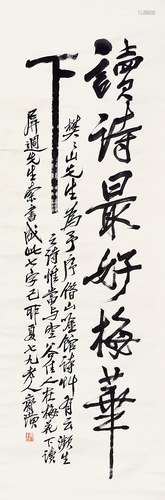 讀詩最好梅華
下
樊山先生為予序借山唫館詩艸有云瀕生
之詩惟當与空谷佳人在梅花下讀
屏週先生索書成此七字己卯夏七九老人齊璜